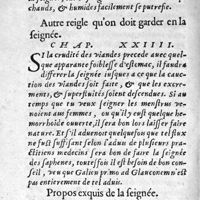 chauds, & humides facilement se putrefie.
Autre reigle qu'on doit garder en la
seignée.
CHAP. XXIIII.
SI la crudité des viandes precede avec quel-
que apparante foiblesse d'estomac, il faudra
differer la seignée iusques a ce que la cauctio
des viandes soit faite, & que les excre-
ments, & superfluités soient descendues. Si au
temps que tu veux seigner les menstrues ve-
noient aux femmes, ou qu'il y eust quelque he-
morrhoide ouverte, il sera bon lors laisser faire
nature. Et s'il aduenoit quelquefois que tel flux
ne fust suffisant selon l'aduis de plusieurs pra-
ticiens medecins sera bon de faire la seignée
des saphenes, toutesfois il est besoin de bon con-
seil, veu que Galien primo ad Glauconem n'est
pas entierement de tel aduis.
Propos exquis de la seignée.